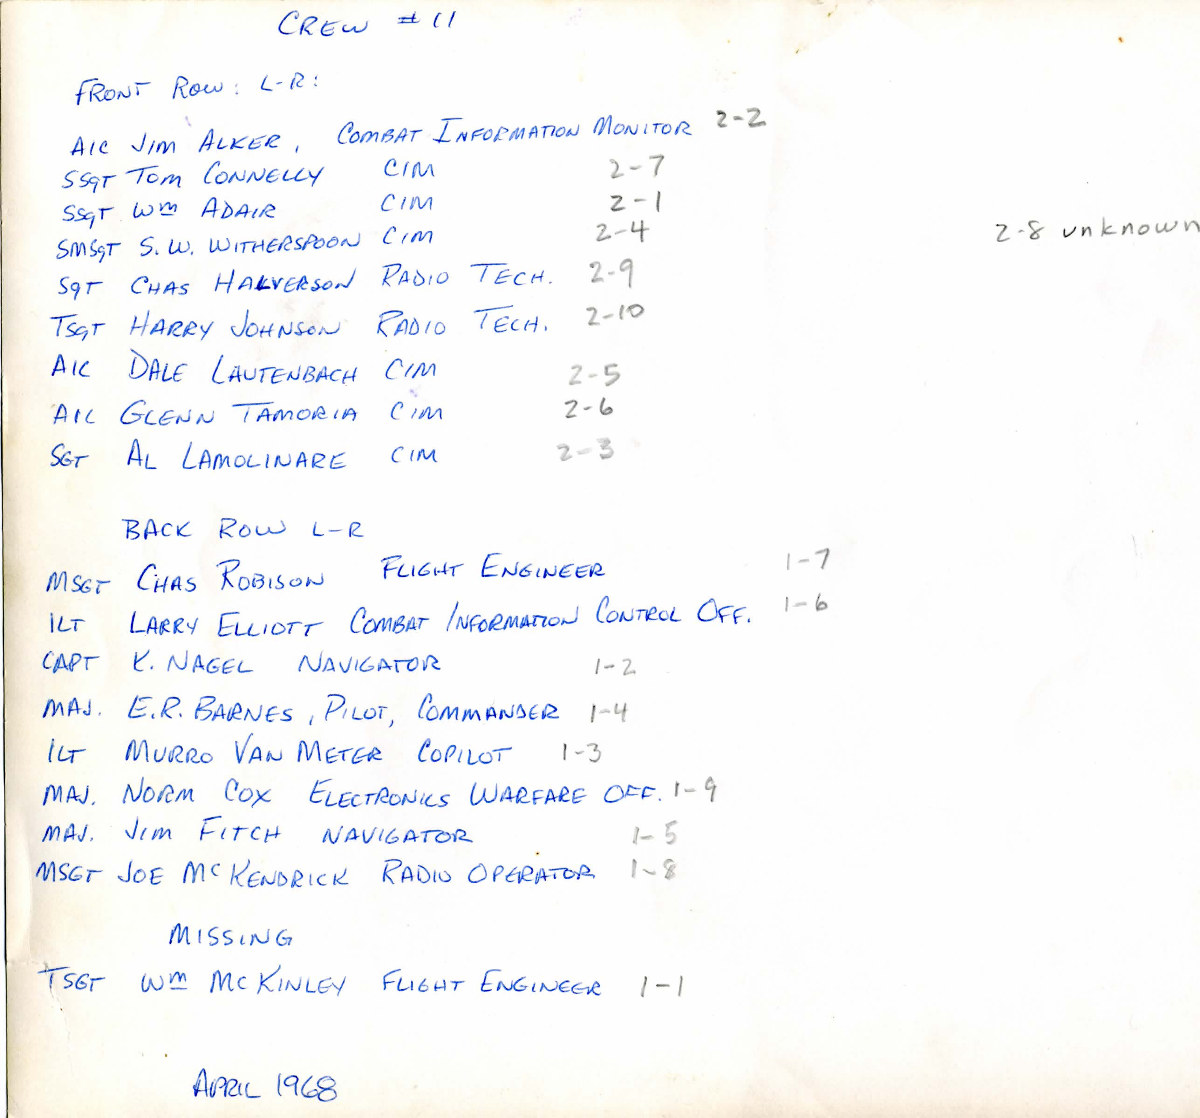 CREW #11
FRONT ROW: L-R:
A1C JIM ALKER, COMBAT INFORMATION MONITOR 2-2
SSGT TOM CONNELLY CIM 2-7
SSGT Wm ADAIR CIM 2-1
SMSGT S.W. WITHERSPOON CIM 2-4
2-8 unknown
SGT CHAS HALVERSON RADIO TECH. 2-9
TSGT HARRY JOHNSON RADIO TECH. 2-10
A1C DALE LAUTENBACH CIM 2-5
A1C GLENN TAMORIA CIM 2-6
SGT AL LAMOLINARE CIM 2-3
BACK ROW L-R
MSGT CHAS ROBISON FLIGHT ENGINEER 1-7
1LT LARRY ELLIOTT COMBAT INFORMATION CONTROL OFF. 1-6
CAPT K. NAGEL NAVIGATOR 1-2
MAJ. E.R. BARNES, PILOT, COMMANDER 1-4
1LT MURRO VAN METER COPILOT 1-3
MAJ. NORM COX ELECTRONICS WARFARE OFF. 1-9
MAJ. JIM FITCH NAVIGATOR 1-5
MSGT JOE McKENDRICK RADIO OPERATOR 1-8
MISSING
TSGT Wm McKINLEY FLIGHT ENGINEER 1-1
APRIL 1968